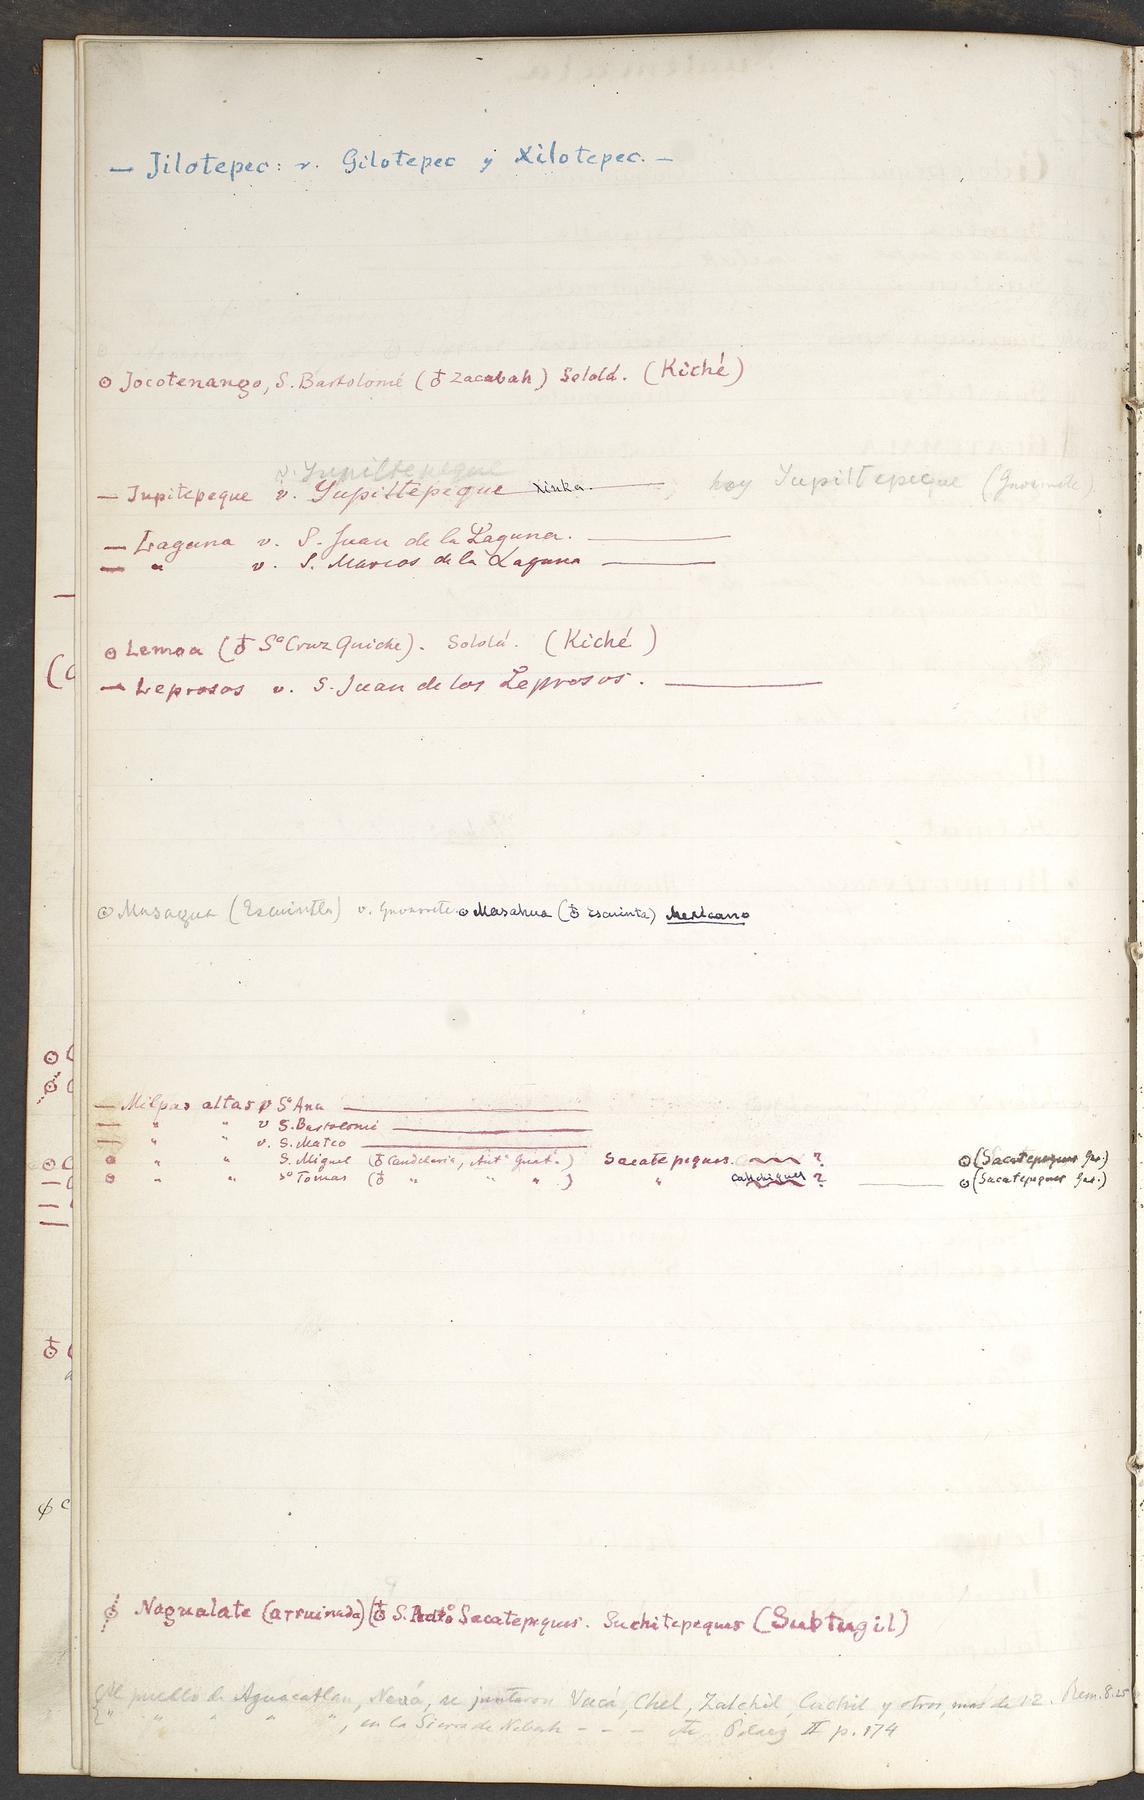 — Jilotepec: v. Gilotepec y Xilotepec. —
⊙ Jocotenango, S. Bartolomé (♁ Zacabah) Sololá. (Kiché)
v. Yupiltepeque
— Jupitepeque v. Yupiltepeque Xinka. ; hoy Yupiltepeque (Gavarrete)
— Laguna v. S. Juan de la Laguna. —
— " v. S. Marcos de la Laguna —
⊙ Lemoa (♁ Sᵃ Cruz Quiche). Sololá. (Kiché)
— Leprosos v. S. Juan de los Leprosos. —
⊙ Masagua (Escuintla) v. Gavarrete ⊙ Masahua (♁ Escuinta) Mexicano
— Milpas altas v Sᵃ Ana —
— " " v S. Bartolomé —
— " " v. S. Mateo —
⊙ " " S. Miguel (♁ Candelaria, Antᵃ Guat.) Sacatepeques. ? ⊙ (Sacatepeques Gav.)
⊙ " " Sᵒ Tomas (♁ " " ") " ? — ⊙ (Sacatepeques Gav.)
Nagualate (arruinada) (♁ S. Sacatepeques. Suchitepeques (Subtugil)
pueblo de Aguacatlan, Nexá, se juntaron Vacá, Chel, Zalchil, Cuchil y otros, mas de 12. Rem. 8.25
" " " " ", en la Sierra de Nebah - - - Pelaez II p. 174